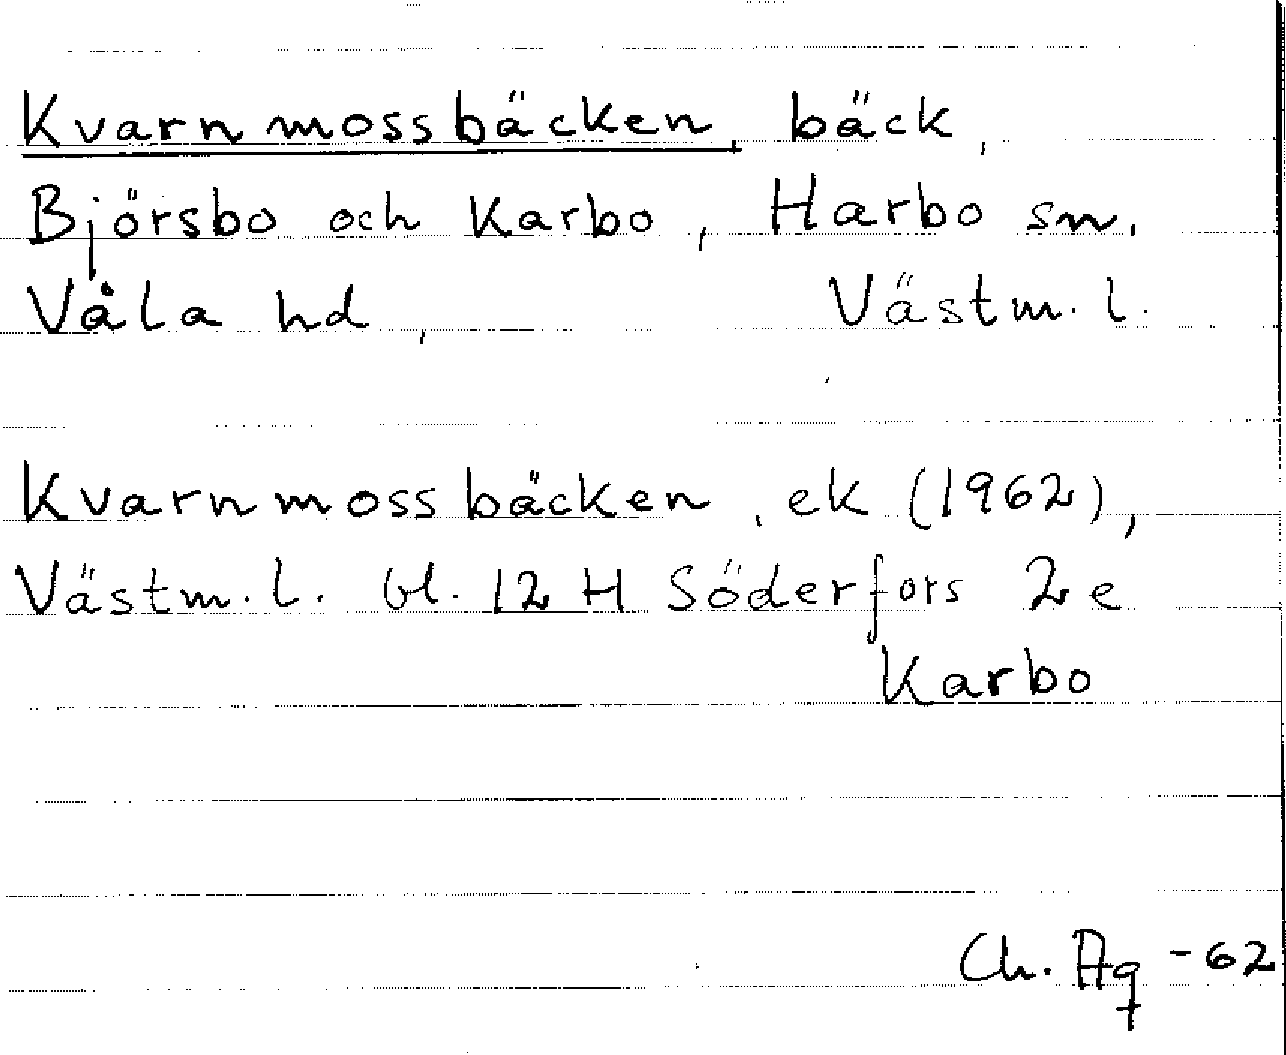 Kvarnmossbäcken, bäck,
Björsbo och Karbo, Harbo sn.
Våla hd, Västm. l.
Kvarnmossbäcken, ek (1962),
Västm. l. bl. 12 H Söderfors 2 e
Karbo
Ch. Aq -62